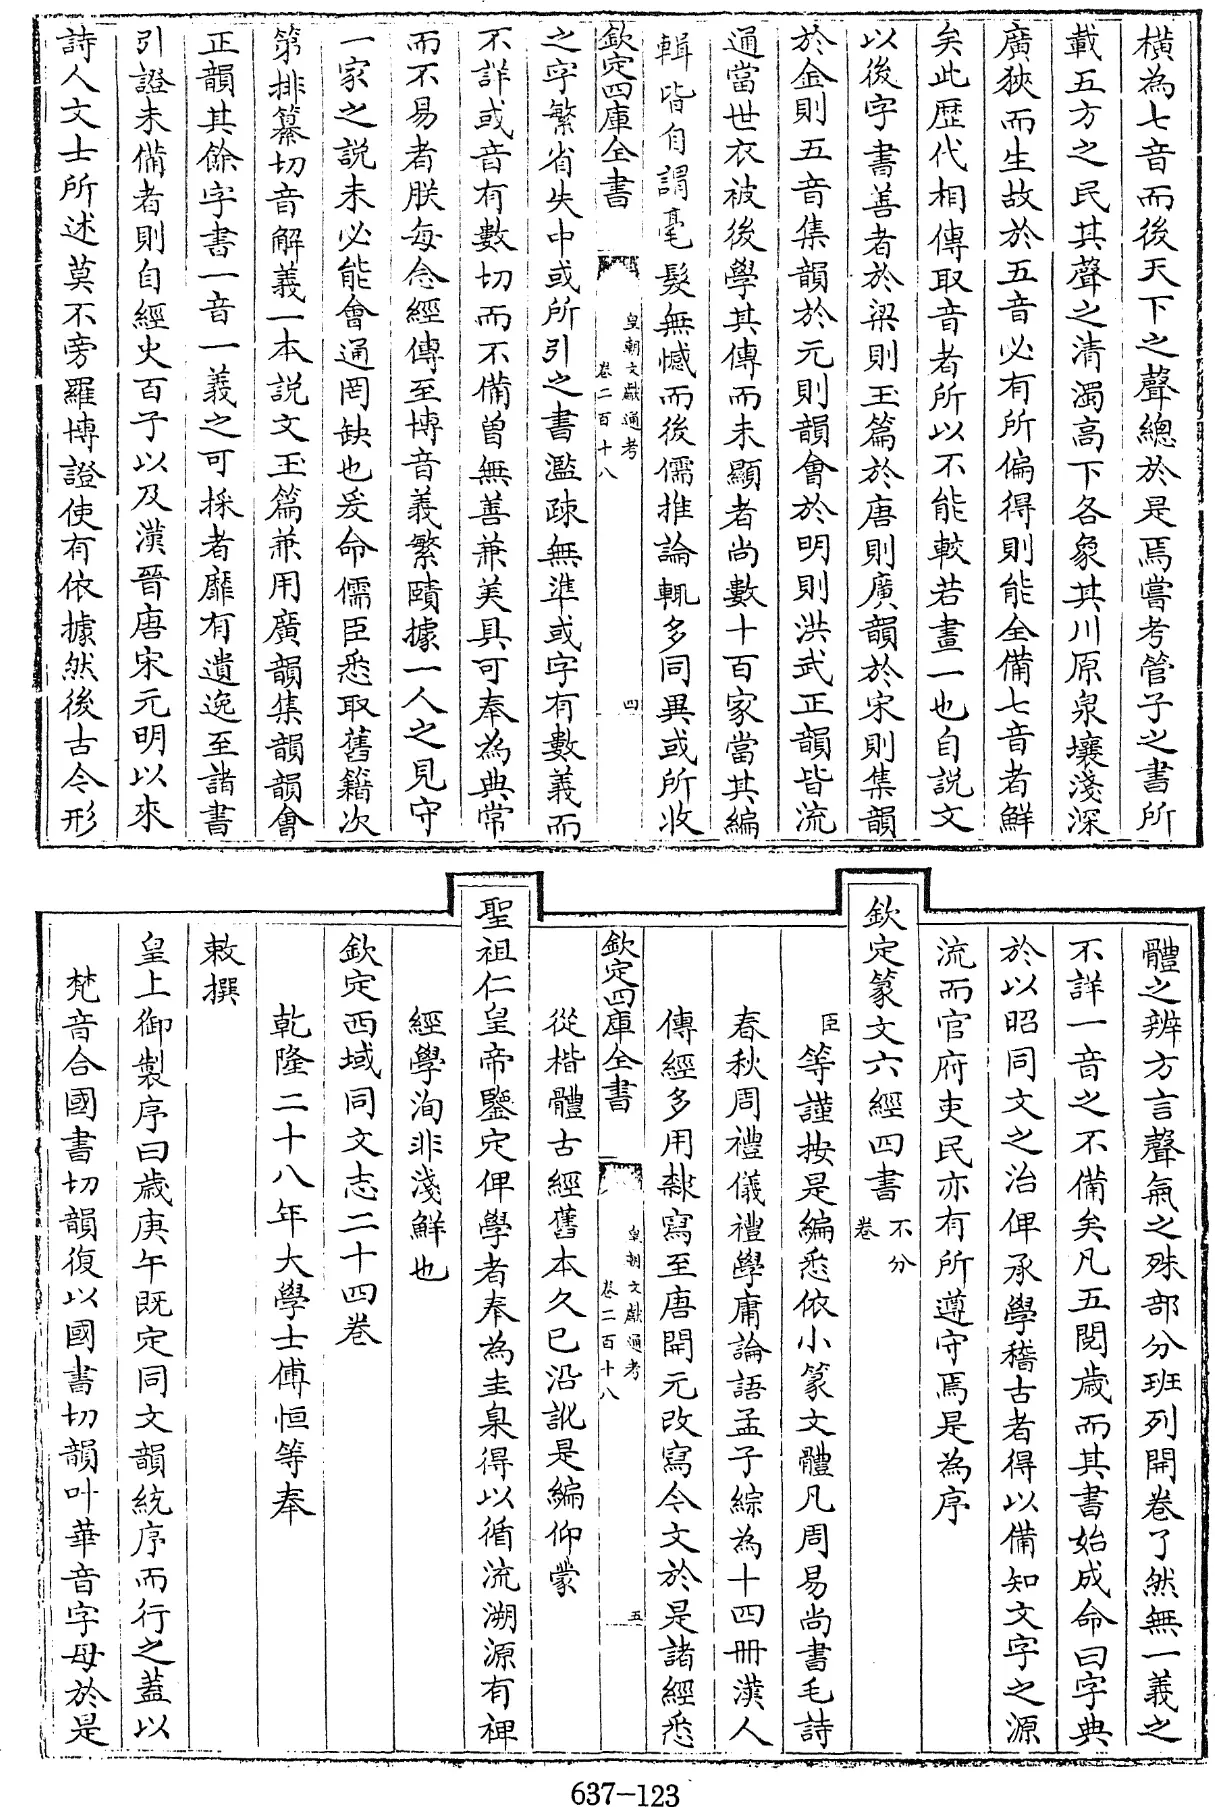 橫為七音而後天下之聲總於是焉嘗考管子之書所
載五方之民其聲之清濁高下各象其川原泉壤淺深
廣狹而生故於五音必有所偏得則能全備七音者鮮
矣此歷代相傳取音者所以不能較若畫一也自説文
以後字書善者於梁則玉篇於唐則廣韻於宋則集韻
於金則五音集韻於元則韻會於明則洪武正韻皆流
通當世衣被後學其傳而未顯者尚數十百家當其編
輯皆自謂毫髮無憾而後儒推論輒多同異或所收
欽定四庫全書
皇朝文獻通考
卷二百十八
四
之字繁省失中或所引之書濫疎無準或字有數義而
不詳或音有數切而不備曾無善兼美具可奉為典常
而不易者朕每念經傳至博音義繁賾據一人之見守
一家之説未必能會通罔缺也爰命儒臣悉取舊籍次
第排纂切音解義一本説文玉篇兼用廣韻集韻韻會
正韻其餘字書一音一義之可採者靡有遺逸至諸書
引證未備者則自經史百子以及漢晉唐宋元明以來
詩人文士所述莫不旁羅博證使有依據然後古今形
體之辨方言聲氣之殊部分班列開卷了然無一義之
不詳一音之不備矣凡五閱歲而其書始成命曰字典
於以昭同文之治俾承學稽古者得以備知文字之源
流而官府吏民亦有所遵守焉是為序
欽定篆文六經四書不分卷
臣等謹按是編悉依小篆文體凡周易尚書毛詩
春秋周禮儀禮學庸論語孟子綜為十四冊漢人
傳經多用隸寫至唐開元改寫今文於是諸經悉
欽定四庫全書
皇朝文獻通考
卷二百十八
五
從楷體古經舊本久已沿訛是編仰蒙
聖祖仁皇帝鑒定俾學者奉為圭臬得以循流溯源有裨
經學洵非淺鮮也
欽定西域同文志二十四卷
乾隆二十八年大學士傅恒等奉
敕撰
皇上御製序曰歲庚午既定同文韻統序而行之蓋以
梵音合國書切韻復以國書切韻叶華音字母於是
637-123